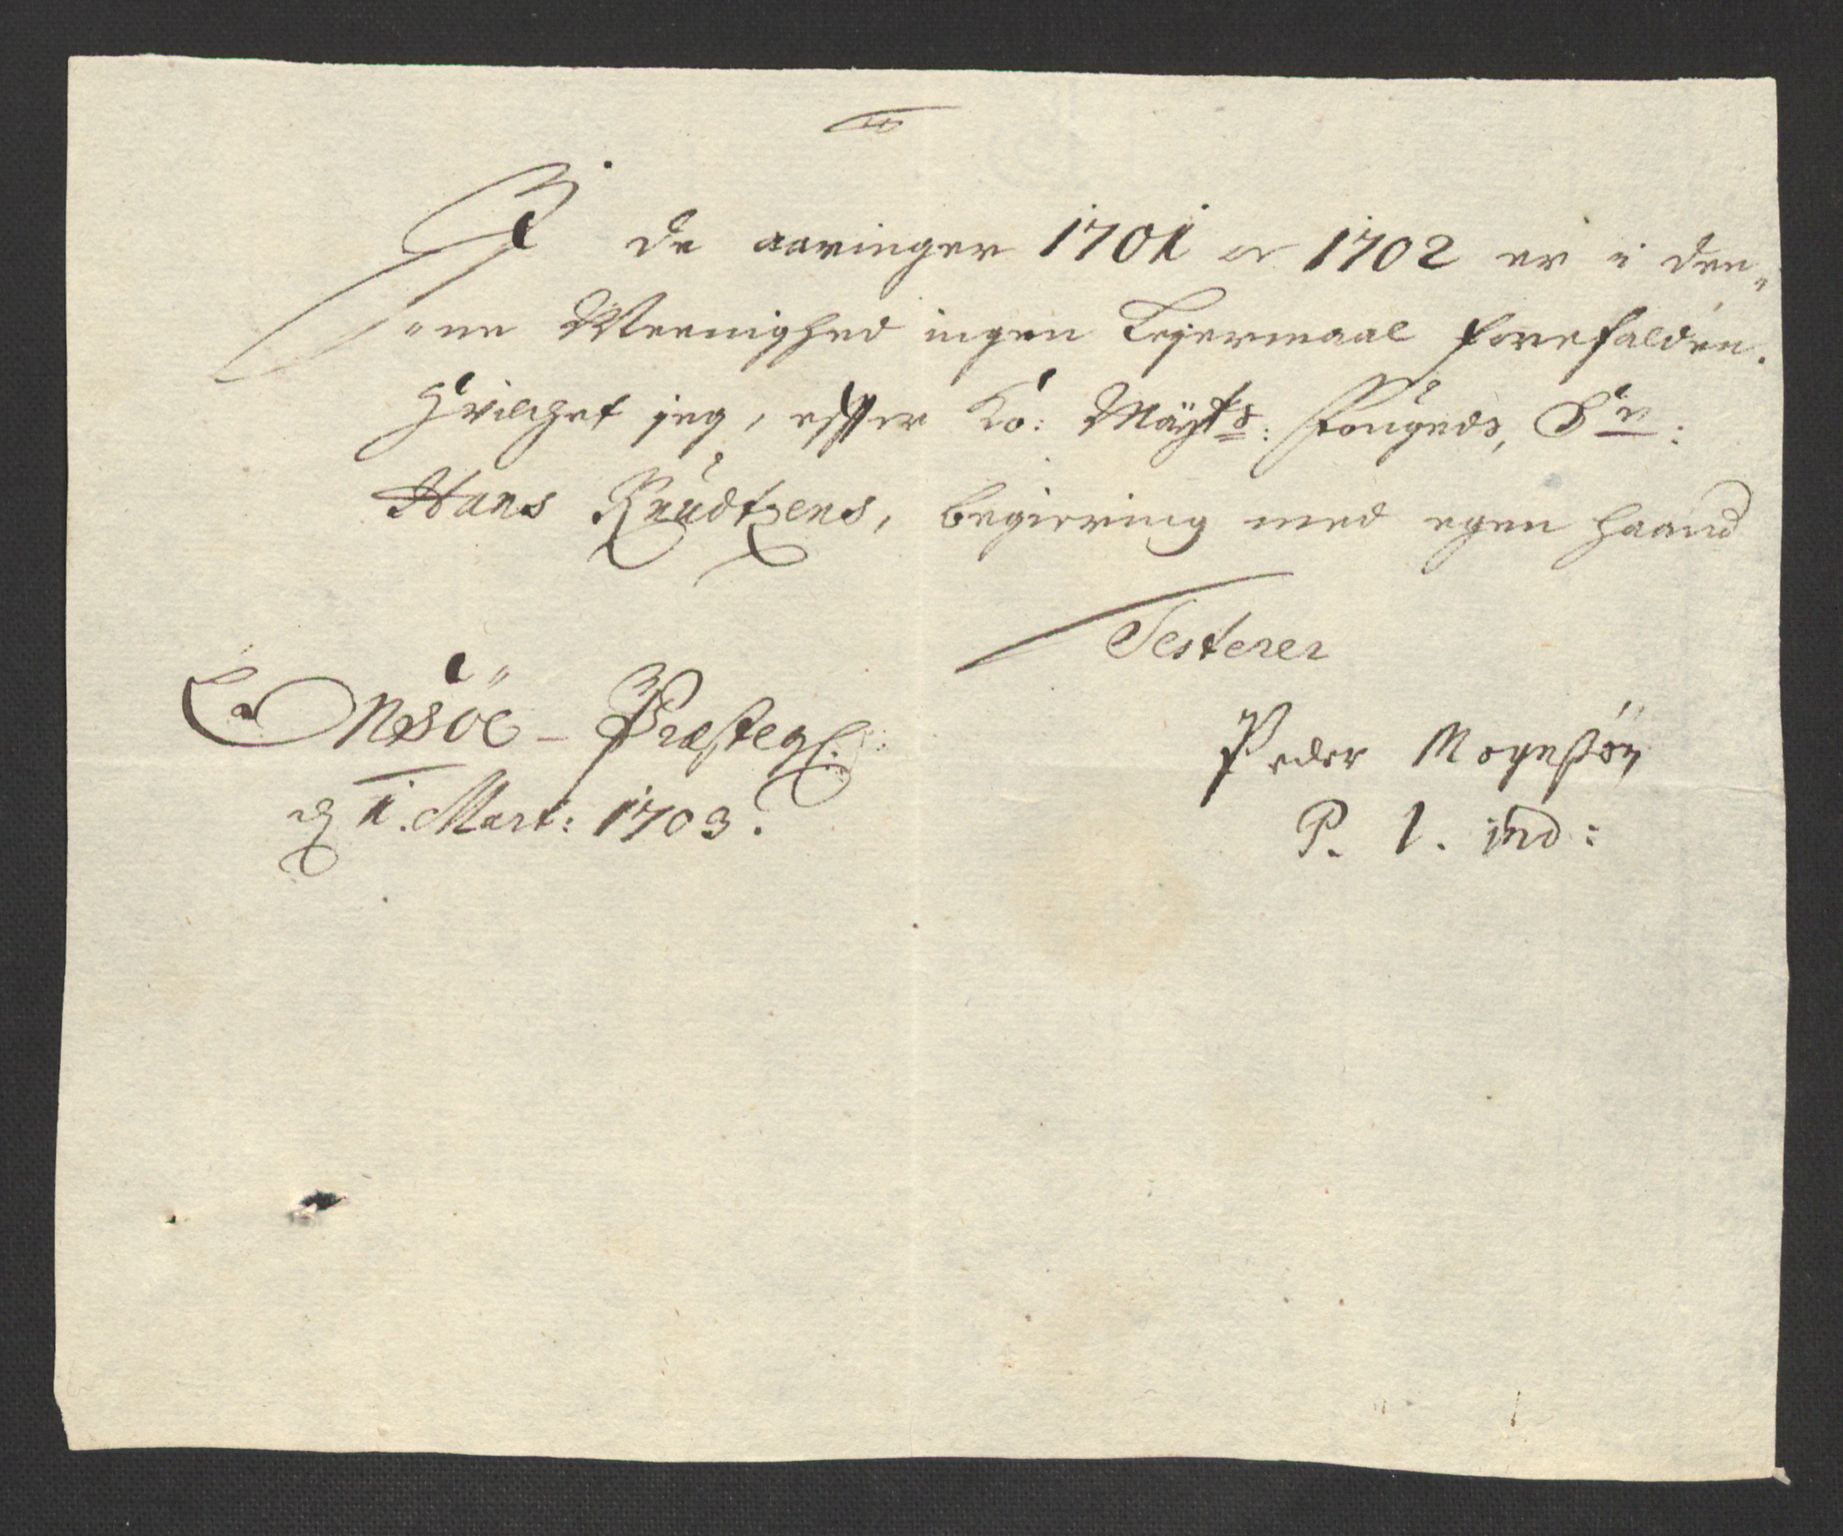 I de aaringer 1701 og 1702 er i den„
„ne Meenighed ingen Lejermaal forefalden.
Hvilchet jeg, efter Ko: Mäyts: fougeds, Sr:
Hans Knudtzens, begiering med egen haand
Testerer
Onsöe - Præsteg:
d 1. Mart: 1703.
Peder Mogensön
P. l. ind: